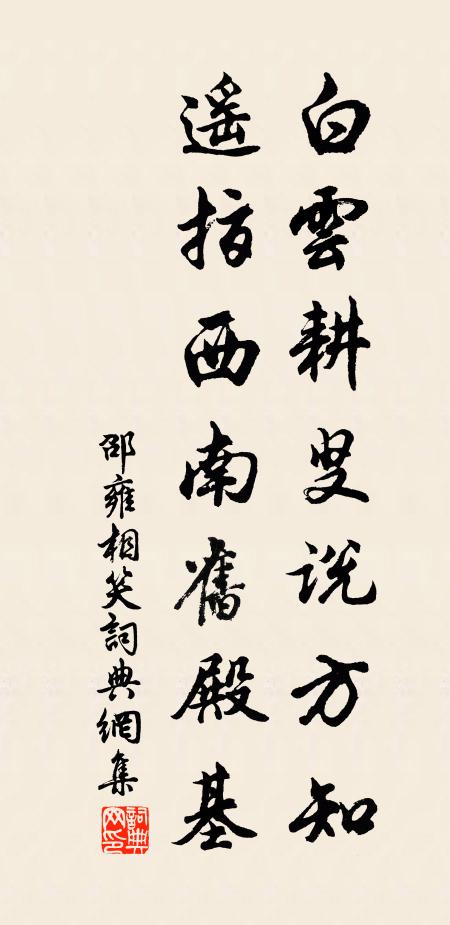 白雲耕叟説方知
遥指西南舊殿基
邵雍相笑詞典網集
詞典
网印